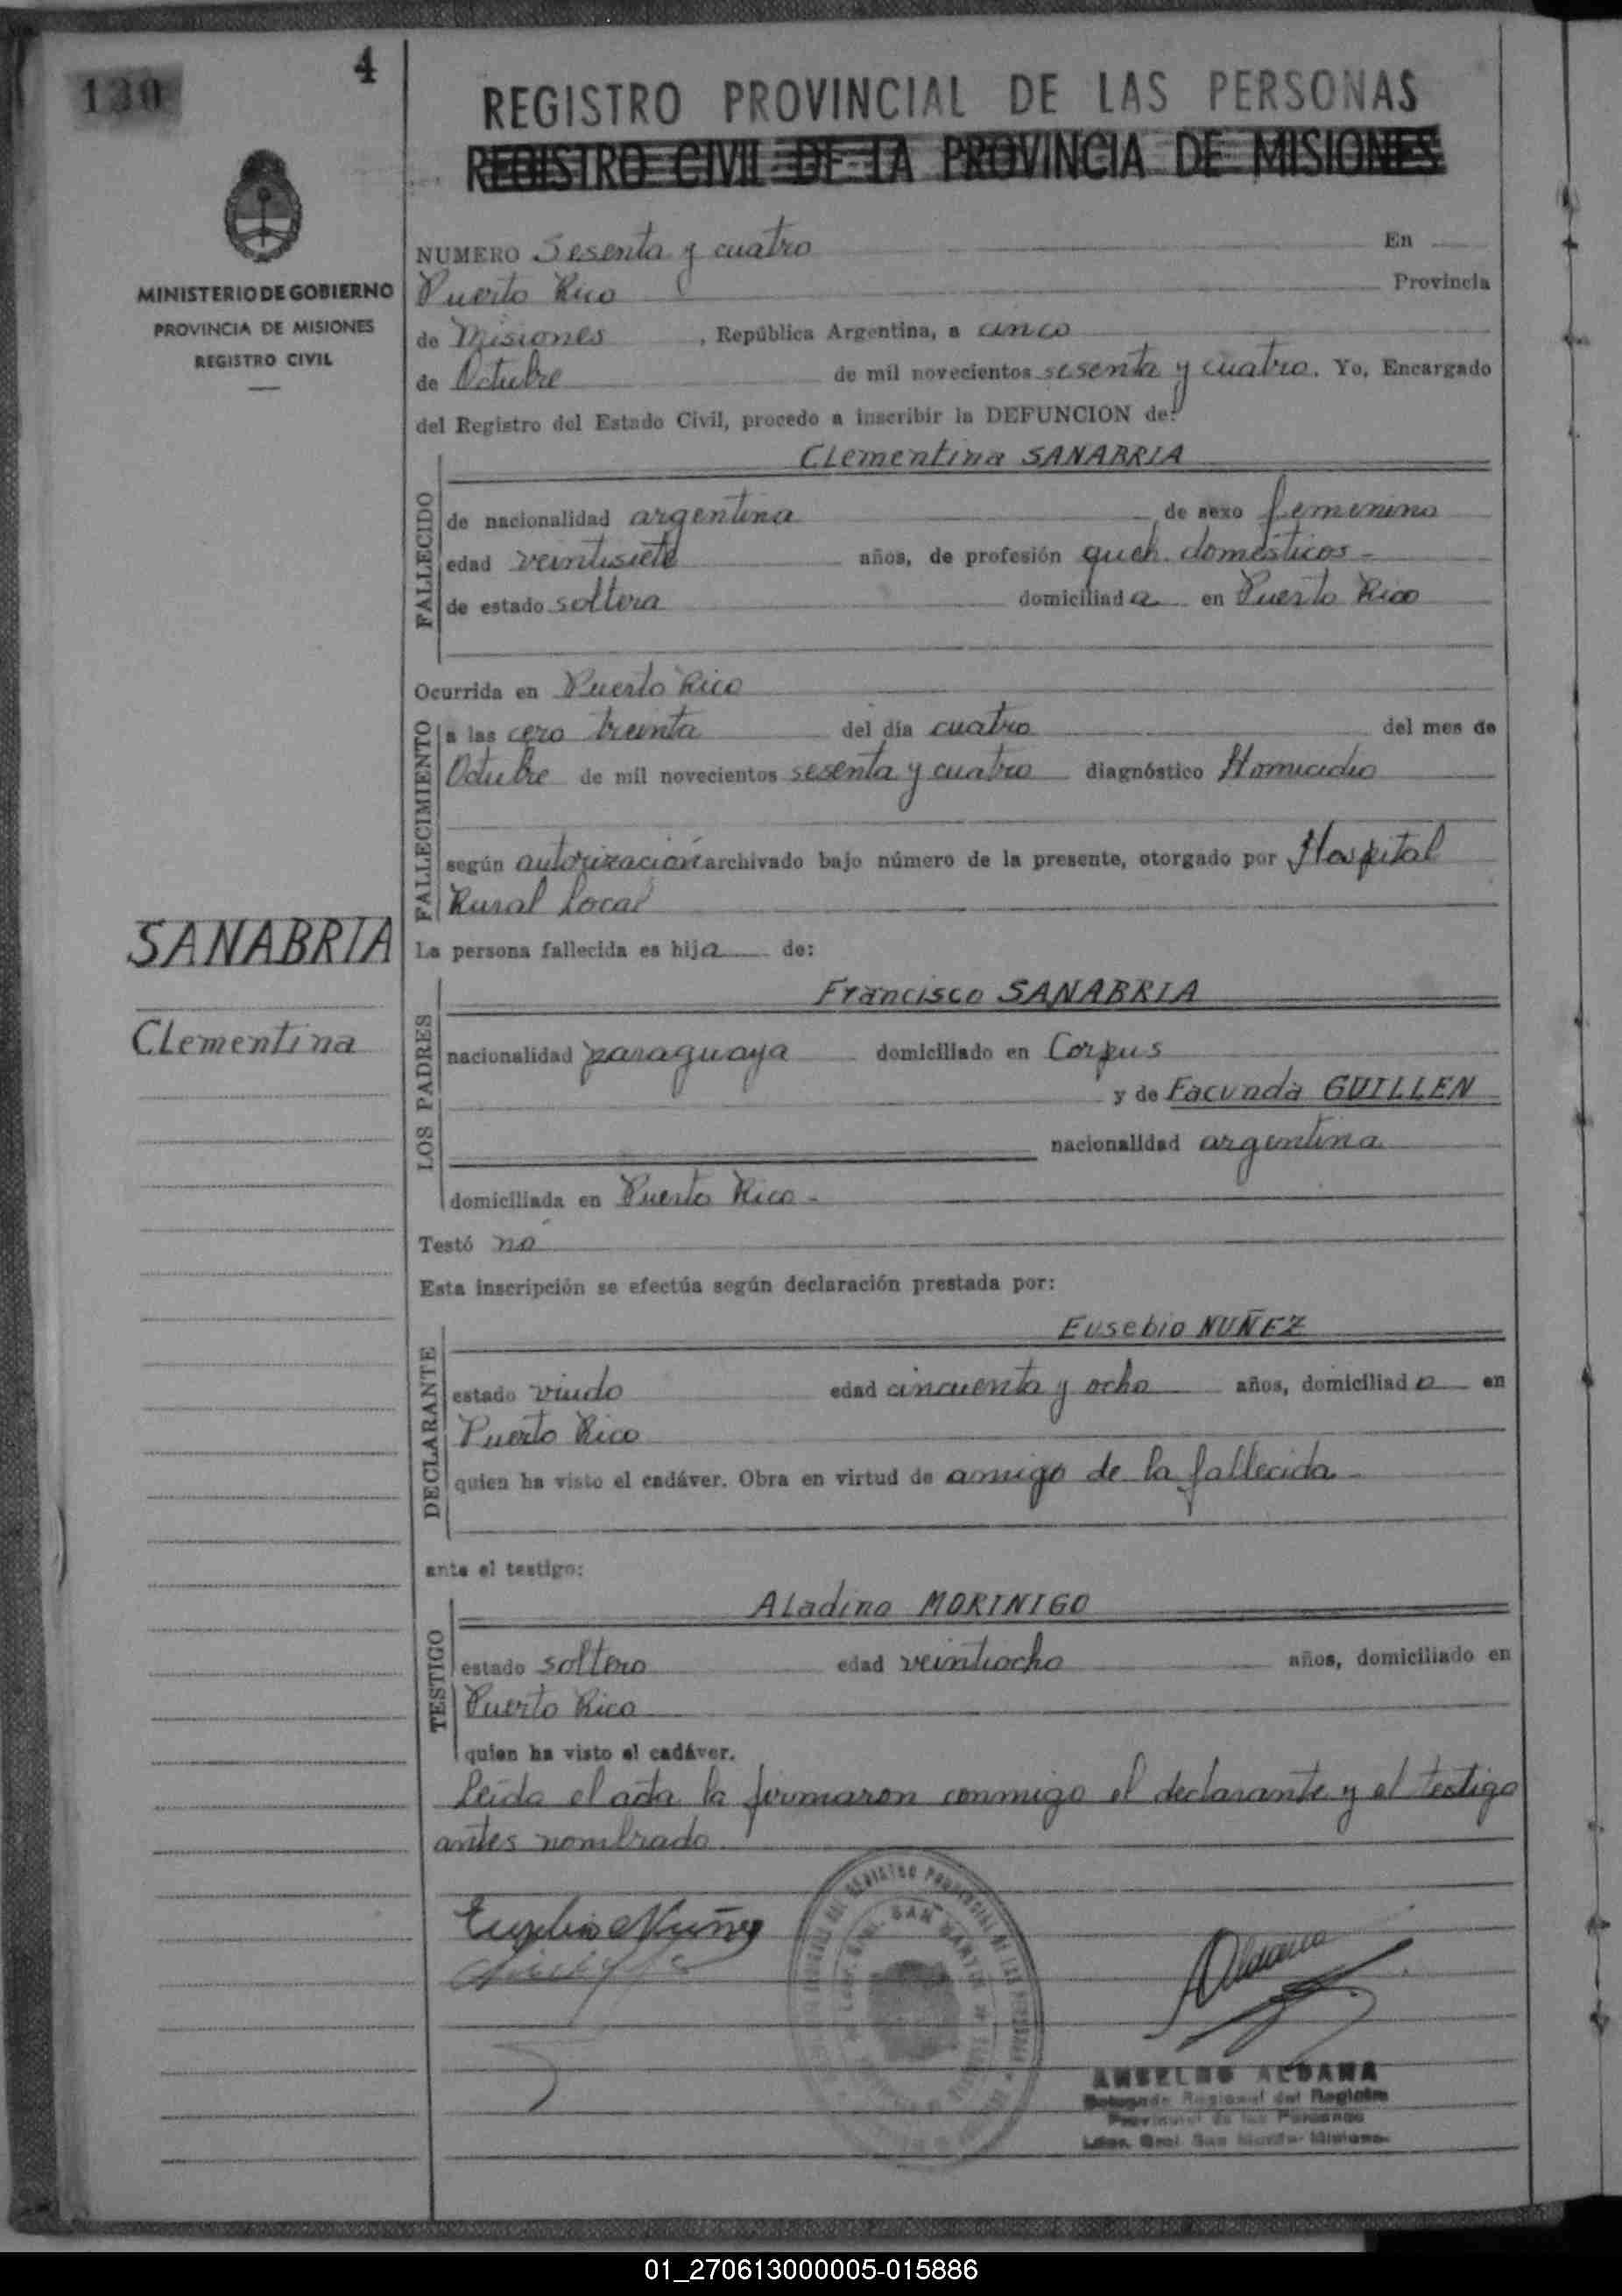 130
4
REGISTRO PROVINCIAL DE LAS PERSONAS
REGISTRO CIVIL DE LA PROVINCIA DE MISIONES
MINISTERIO DE GOBIERNO
PROVINCIA DE MISIONES
REGISTRO CIVIL
NUMERO Sesenta y cuatro En
Puerto Rico Provincia
de Misiones, República Argentina, a cinco
de Octubre de mil novecientos sesenta y cuatro. Yo, Encargado
del Registro del Estado Civil, procedo a inscribir la DEFUNCION de:
Clementina SANABRIA
FALLECIDO
de nacionalidad argentina de sexo femenino
edad veintisiete años, de profesión queh. domésticos-
de estado soltera domiciliada en Puerto Rico
Ocurrida en Puerto Rico
FALLECIMIENTO
a las cero treinta del día cuatro del mes de
Octubre de mil novecientos sesenta y cuatro diagnóstico Homicidio
según autorización archivado bajo número de la presente, otorgado por Hospital
Rural Local
SANABRIA
Clementina
La persona fallecida es hija de:
Francisco SANABRIA
LOS PADRES
nacionalidad paraguaya domiciliado en Corpus
y de Facunda GUILLEN
nacionalidad argentina
domiciliada en Puerto Rico-
Testó no
Esta inscripción se efectúa según declaración prestada por:
Eusebio NUÑEZ
DECLARANTE
estado viudo edad cincuenta y ocho años, domiciliado en
Puerto Rico
quien ha visto el cadáver. Obra en virtud de amigo de la fallecida-
ante el testigo:
Aladino MORINIGO
TESTIGO
estado soltero edad veintiocho años, domiciliado en
Puerto Rico
quien ha visto el cadáver.
Leída el acta la firmaron conmigo el declarante y el testigo
antes nombrado.
Eusebio Nuñez
Aldana
ANSELMO ALDANA
Delegado Regional del Registro
Provincial de las Personas
Ldor. Gral. San Martín-Misiones
01_270613000005-015886